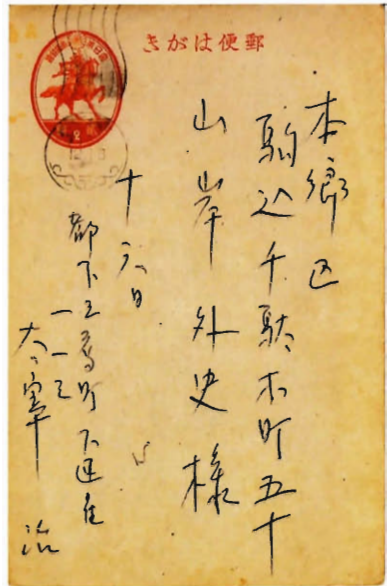 郵便はがき
本郷区
駒込千駄木町五十
山岸外史様
十六日
都下三鷹町下連雀
一一三
太宰治